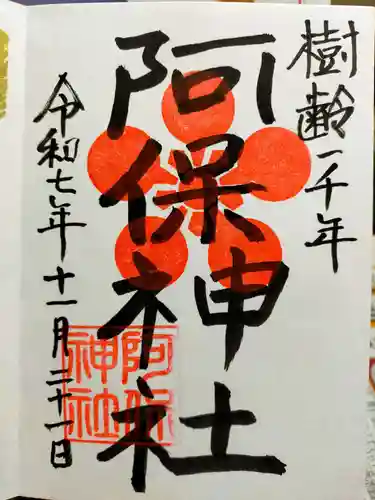 樹齢一千年
阿保神社
令和七年十一月二十一日
阿保神社